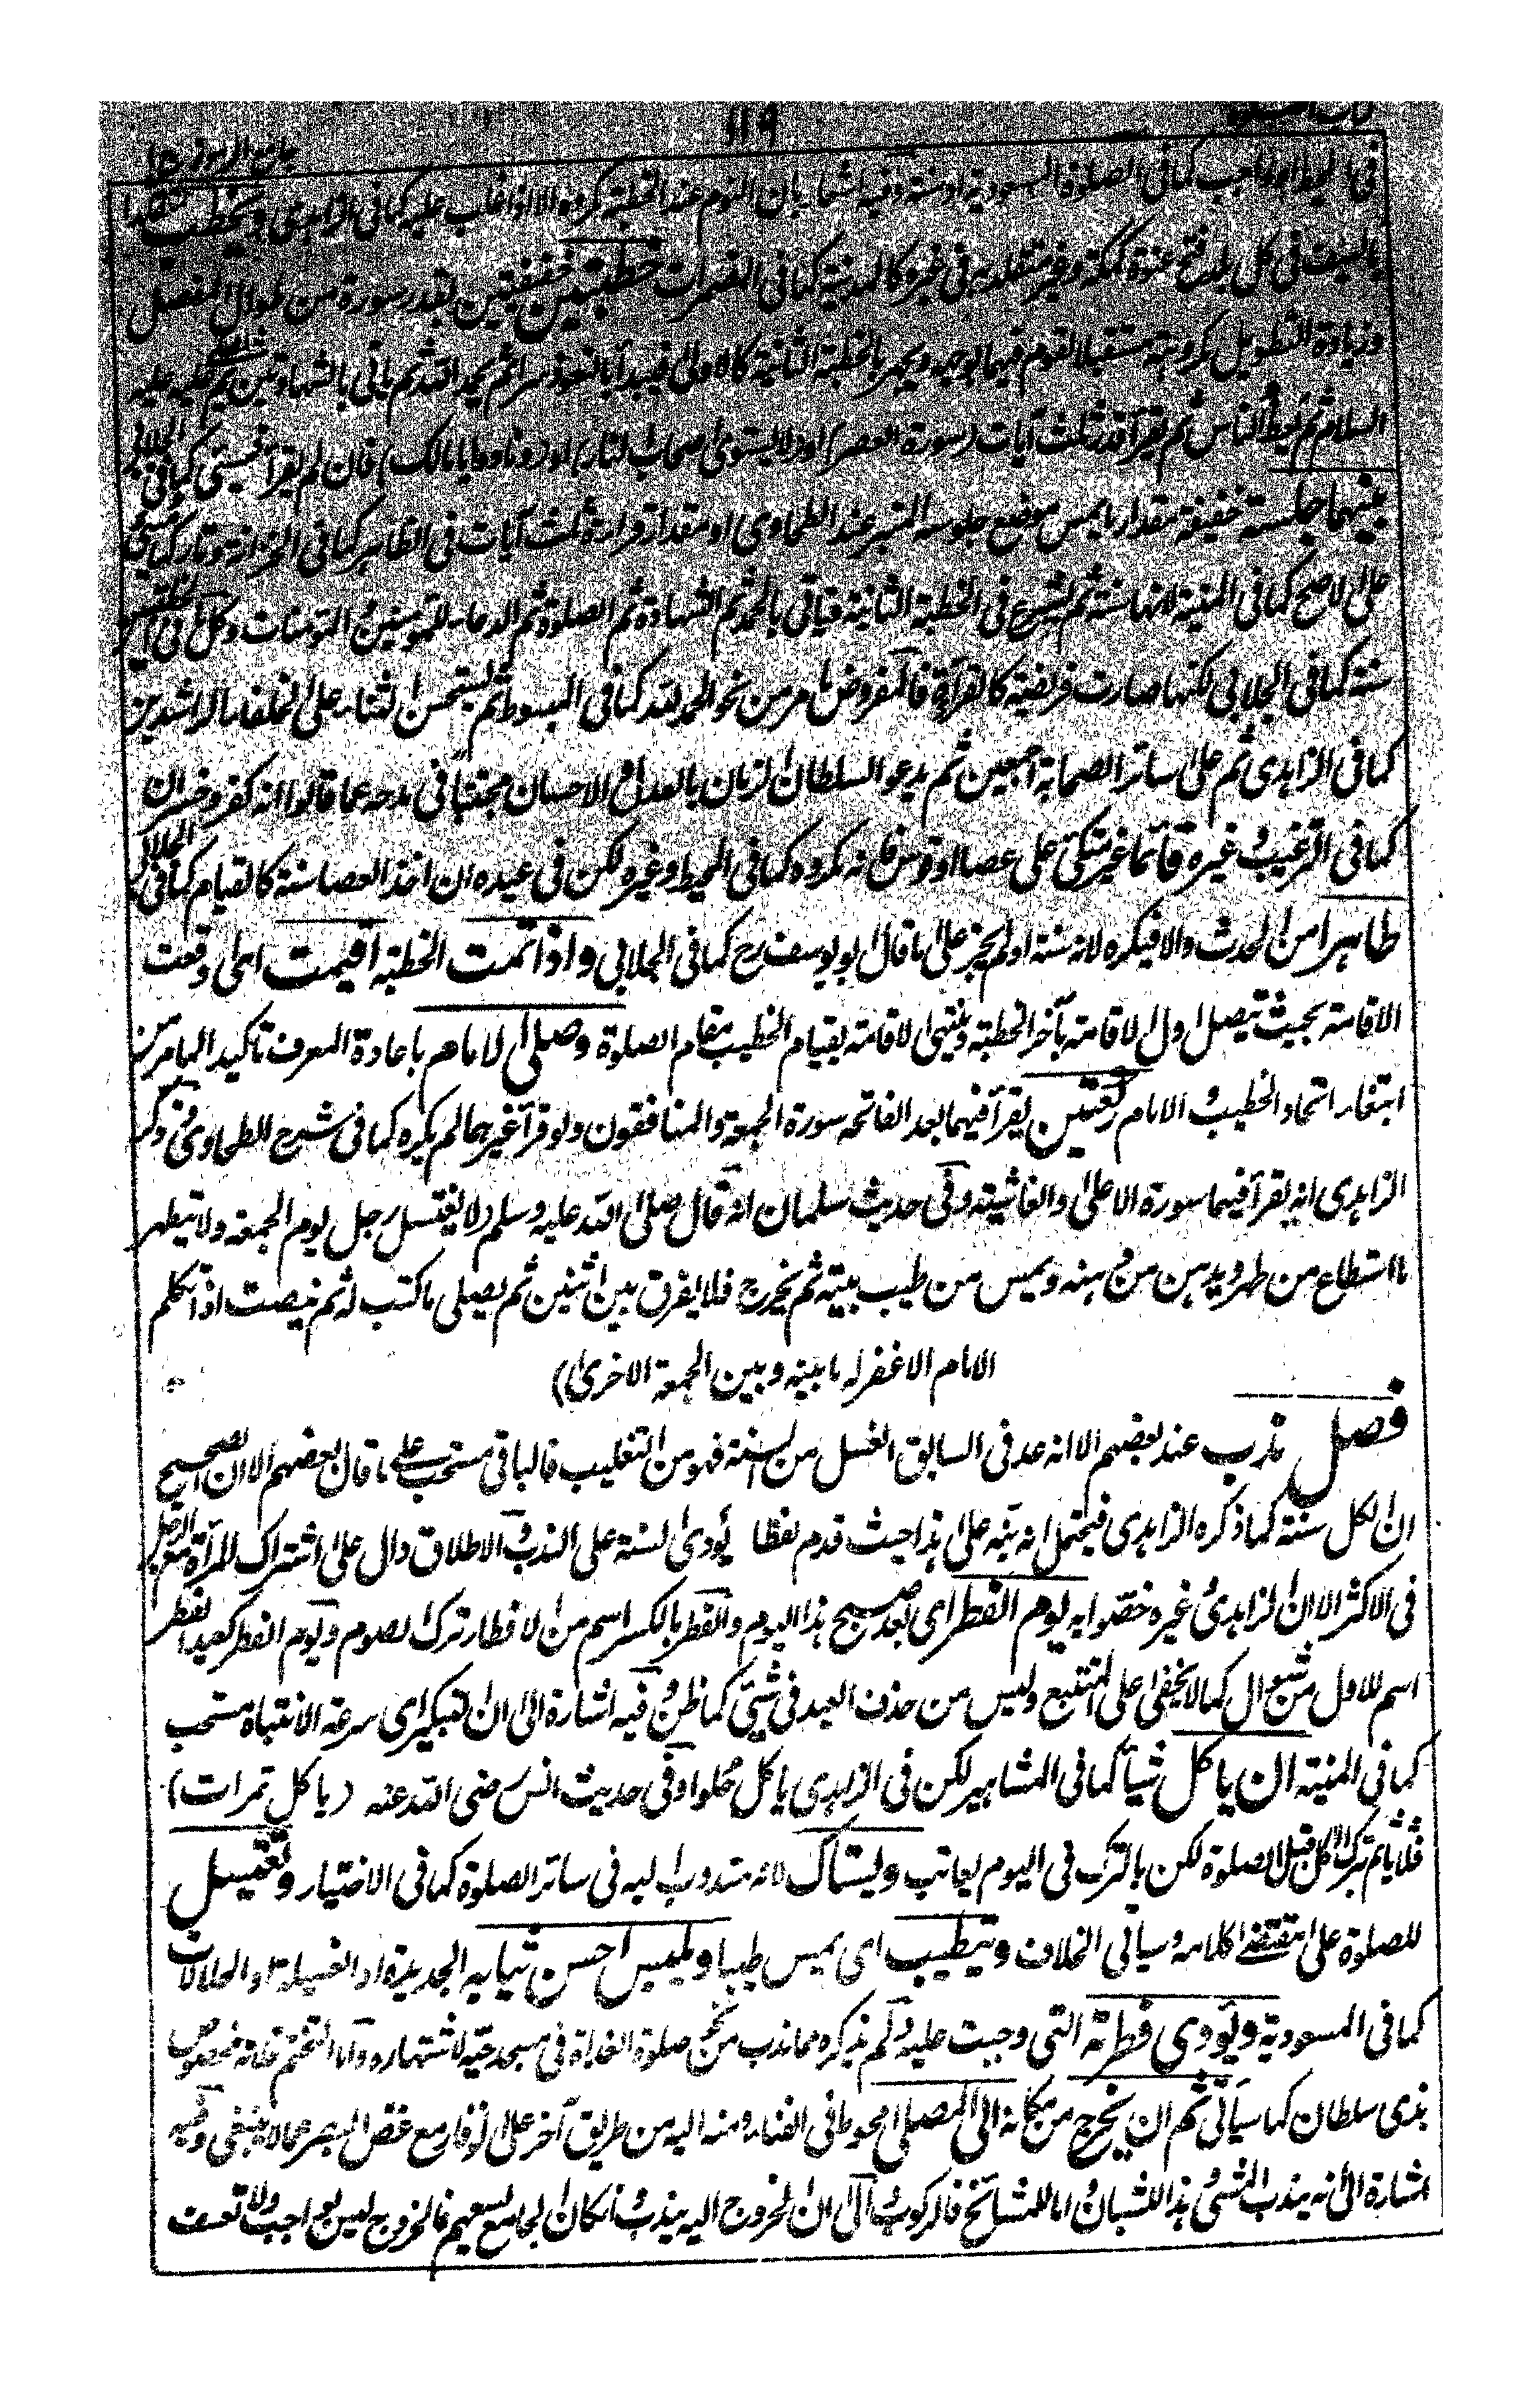 كتاب الصلوة
١١٩
جامع الرموز ج١
في المحيط او واجب كما في الصلوة المسعودية او سنة وفيه اشعار بان النوم عند الخطبة مكروه الا اذا غلب عليه كما في الزاهدي ويخطب متقلدا
بالسيف في كل بلد فتح عنوة كمكة وغير متقلد به في غيره كالمدينة كما في المضمرات خطبتين خفيفتين بقدر سورة من طوال المفصل
وزيادة التطويل مكروهة مستقبلا القوم فيهما بوجهه ويجهر بالخطبة الثانية كالاولى فيبدأ بالتعوذ سرا ثم بحمد الله ثم يأتي بالشهادتين ثم عليه عليه
السلام ثم يعظ الناس ثم يقرأ قدر ثلث آيات (سورة العصر) او (لا يستوى اصحاب النار) او (ونادوا يا مالك) فان لم يقرأ كما في الجلابي
بينهما جلسة خفيفة مقدار ما يمس موضع جلوسه المنبر عند الطحاوي او مقدار قراءة ثلث آيات في الظاهر كما في الخزانة وتاركها مسئ
على الاصح كما في المنية لانها سنة ثم يشرع في الخطبة الثانية فيأتي بالحمد ثم الشهادة ثم الصلوة ثم الدعاء للمؤمنين والمؤمنات وكل في
سنة كما في الجلابي لكنها صارت فريضة كالقرآة فالمفروض ما مر من نحو الحمد لله كما في المبسوط ثم يستحسن الثناء على الخلفاء الراشدين
كما في الزاهدي ثم على سائر الصحابة اجمعين ثم يدعو السلطان الزمان بالعدل والاحسان مجتنبا في مدحه عما قالوا انه كفر وخسران
كما في الترغيب وغيره قائما غير متكئ على عصا او قوس فانه مكروه كما في المحيط وغيره لكن في عيده ان اخذ العصا سنة كالقيام كما في الجلابي
طاهرا من الحدث والا فيكره لانه سنة او لم يجز على ما قال ابو يوسف رح كما في الجلابي واذا تمت الخطبة اقيمت اى وقعت
الاقامة بحيث يتصل اول الاقامة بآخر الخطبة وينتهى الاقامة بقيام الخطيب مقام الصلوة وصلى الامام باعادة المعرف تأكيد لما مر من
ابتغاء اتحاد الخطيب والامام ركعتين يقرأ فيهما بعد الفاتحة سورة الجمعة والمنافقون ولو قرأ غيرهما لم يكره كما في شرح الطحاوي وذكر
الزاهدي انه يقرأ فيهما سورة الاعلى والغاشية وفي حديث سلمان انه قال صلى الله عليه وسلم (لا يغتسل رجل يوم الجمعة ولا يتطهر
ما استطاع من طهر ويدهن من دهنه ويمس من طيب بيته ثم يخرج فلا يفرق بين اثنين ثم يصلى ما كتب له ثم ينصت اذا تكلم
الامام الا غفر له ما بينه وبين الجمعة الاخرى)
فصل ندب عند بعضهم الا انه عد في السابق الغسل من السنة فهو من التغليب فالباقي مستحب على ما قال بعضهم الا ان الصحيح
ان الكل سنة كما ذكره الزاهدي فيحتمل انه نبه على هذا حيث قدم لفظا يؤدى السنة على الندب والاطلاق دال على اشتراك المرأة مع الرجل
في الاكثر الا ان الزاهدي وغيره خصوا به يوم الفطر اى بعد صبح هذا اليوم والفطر بالكسر اسم من الافطار ترك الصوم ويوم الفطر كعيد الفطر
اسم للاول من شوال كما لا يخفى على المتتبع وليس من حذف العيد في شئ كما ظن وفيه اشارة الى ان التبكير اى سرعة الانتباه مستحب
كما في المنية ان ياكل شيئا كما في المشاهير لكن في الزاهدي ياكل حلوا وفي حديث انس رضى الله عنه (ياكل تمرات)
فلا يأثم بترك الاكل قبل الصلوة لكن بالترك في اليوم يعاتب ويستاك لانه مندوب اليه في سائر الصلوة كما في الاختيار ويغتسل
للصلوة على مقتضى كلامه وسيأتي الخلاف ويتطيب اى يمس طيبا ويلبس احسن ثيابه الجديدة او الغسيلة او الحلالات
كما في المسعودية ويؤدي فطرته التى وجبت عليه ولم يذكره مما ندب من نحو صلوة الغداة في مسجد حيه لاشتهاره واما التختم فانه مخصوص
بذى سلطان كما سيأتي ثم ان يخرج من مكانه الى المصلى المحوط في الفناء ومنه اليه من طريق آخر على الوقار مع غض البصر عما لا ينبغى وفيه
اشارة الى انه يندب المشى وهذا للشبان واما للمشائخ فالركوب والى ان الخروج اليه يندب وان كان الجامع يسعهم فالخروج ليس بواجب ولا تعسف